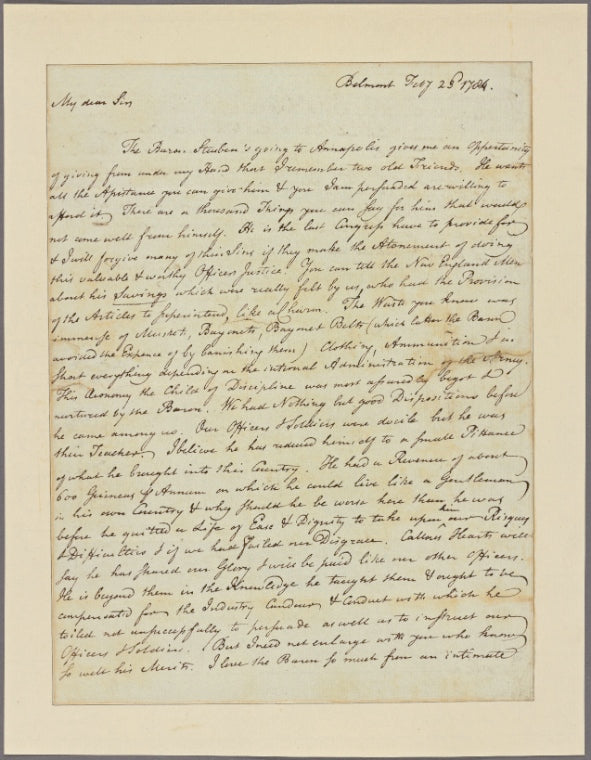 Belmont Feby 23d 1784.
My dear Sir
The Baron Steuben's going to Annapolis gives me an Opportunity
of giving from under my Hand that I remember two old Friends. He wants
all the Assistance you can give him & you I am persuaded are willing to
afford it. There are a thousand Things you can say for him that would
not come well from himself. He is the last Congress have to provide for
& I will forgive many of their Sins if they make the Atonement of doing
this valuable & worthy Officer Justice. You can tell the New England Men
about his Savings which were really felt by us, who had the Provision
of the Articles to superintend, like a charm. The Waste you know was
immense of Muskets, Bayonets, Bayonet Belts (which latter the Baron
avoided the Expence of by banishing them) Clothing, Ammunition & in
short everything depending on the internal Administration of the Army.
This Oeconomy the Child of Discipline was most assuredly begot &
nurtured by the Baron. We had Nothing but good Dispositions before
he came among us. Our Officers & Soldiers were docile but he was
their Teacher. I believe he has reduced himself to a small Pittance
of what he brought into this Country. He had a Revenue of about
600 Guineas P Annum on which he could live like a Gentleman
in his own Country & why should he be worse here than he was
before he quitted a Life of Ease & Dignity to take upon him our Risques
& Difficulties & if we had failed our Disgrace. Callous Hearts will
say he has shared our Glory & will be paid like our other Officers.
He is beyond them in the Knowledge he taught them & ought to be
compensated for the Industry Candour & Conduct with which he
toiled not unsuccessfully to persuade as well as to instruct our
Officers & Soldiers. But I need not enlarge with you who know
so well his Merits. I love the Baron so much from an intimate